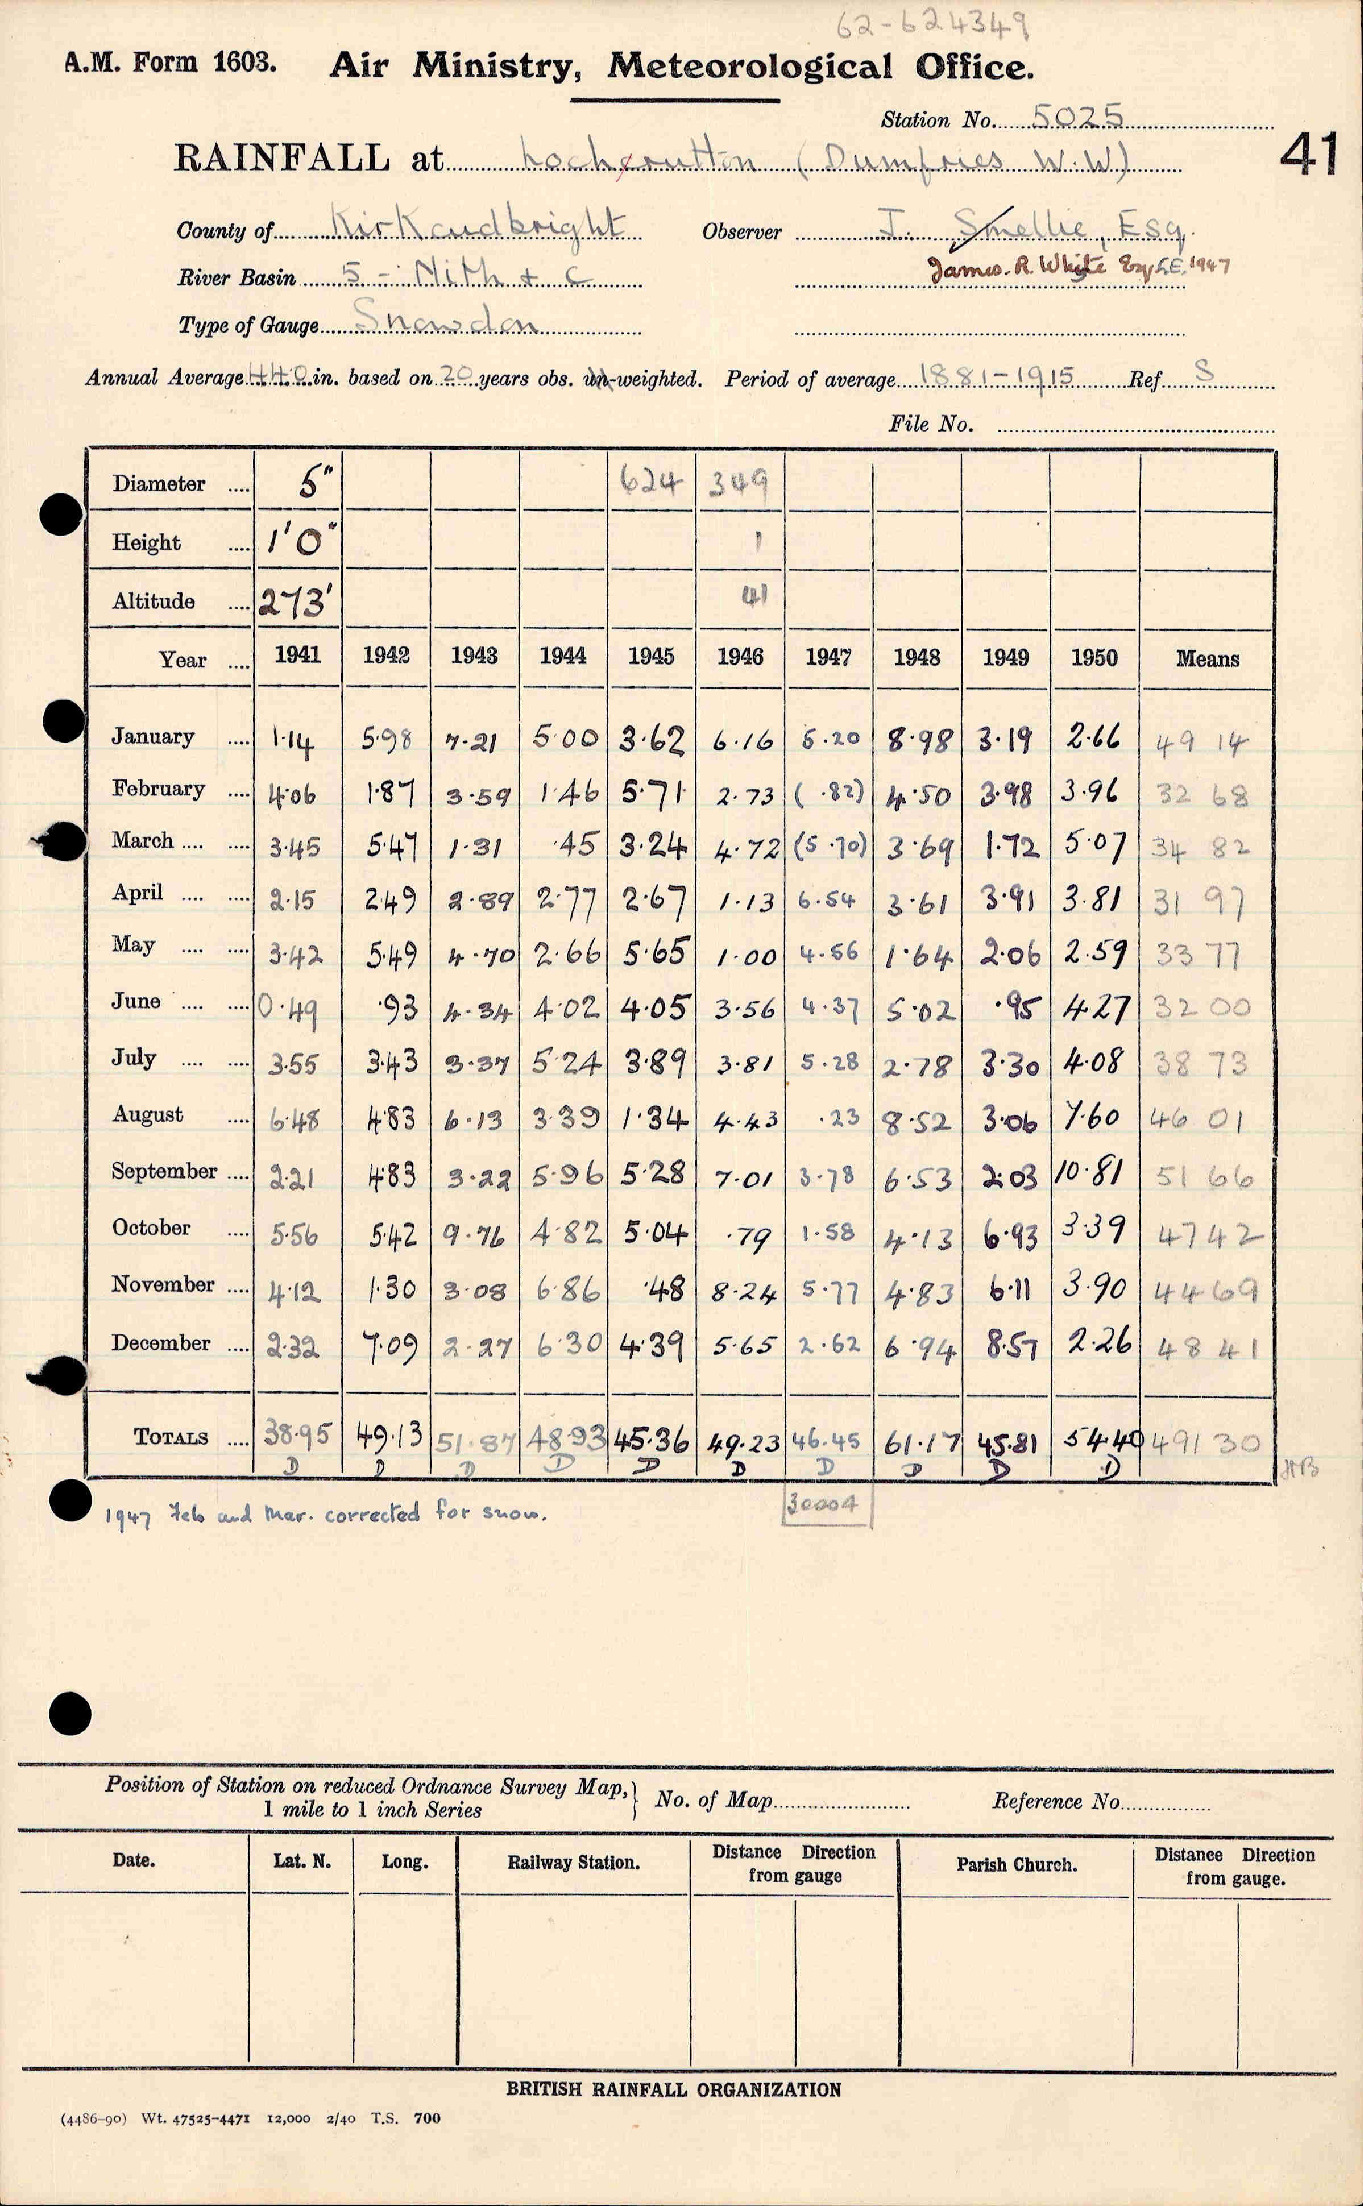 62-624349
A.M. Form 1603. Air Ministry, Meteorological Office.
Station No. 5025
41
RAINFALL at Lochrutton (Dumfries W.W)
County of Kirkcudbright Observer J. Smellie, Esq.
James. R. White Esq C.E. 1947
River Basin 5 - Nith + C
Type of Gauge Snowdon
Annual Average 44.0 in. based on 20 years obs. un-weighted. Period of average 1881-1915 Ref S
File No.
Diameter .... 5" 624 349
Height .... 1'0" 1
Altitude .... 273' 41
Year .... 1941 1942 1943 1944 1945 1946 1947 1948 1949 1950 Means
January .... 1.14 5.98 7.21 5.00 3.62 6.16 5.20 8.98 3.19 2.66 49 14
February .... 4.06 1.87 3.59 1.46 5.71 2.73 (.82) 4.50 3.98 3.96 32 68
March .... .... 3.45 5.47 1.31 .45 3.24 4.72 (5.70) 3.69 1.72 5.07 34 82
April .... .... 2.15 2.49 2.89 2.77 2.67 1.13 6.54 3.61 3.91 3.81 31 97
May .... .... 3.42 5.49 4.70 2.66 5.65 1.00 4.56 1.64 2.06 2.59 33 77
June .... .... 0.49 .93 4.34 4.02 4.05 3.56 4.37 5.02 .95 4.27 32 00
July .... .... 3.55 3.43 3.37 5.24 3.89 3.81 5.28 2.78 3.30 4.08 38 73
August .... 6.48 4.83 6.13 3.39 1.34 4.43 .23 8.52 3.06 7.60 46 01
September .... 2.21 4.83 3.22 5.96 5.28 7.01 3.78 6.53 2.03 10.81 51 66
October .... 5.56 5.42 9.76 4.82 5.04 .79 1.58 4.13 6.93 3.39 47 42
November .... 4.12 1.30 3.08 6.86 .48 8.24 5.77 4.83 6.11 3.90 44 69
December .... 2.32 7.09 2.27 6.30 4.39 5.65 2.62 6.94 8.57 2.26 48 41
TOTALS .... 38.95 49.13 51.87 48.93 45.36 49.23 46.45 61.17 45.81 54.40 491 30
D D D D D D D D D D
1947 Feb and Mar. corrected for snow.
30004
Position of Station on reduced Ordnance Survey Map, 1 mile to 1 inch Series } No. of Map Reference No.
Date. Lat. N. Long. Railway Station. Distance Direction from gauge Parish Church. Distance Direction from gauge.
BRITISH RAINFALL ORGANIZATION
(4486-90) Wt. 47525-4471 12,000 2/40 T.S. 700